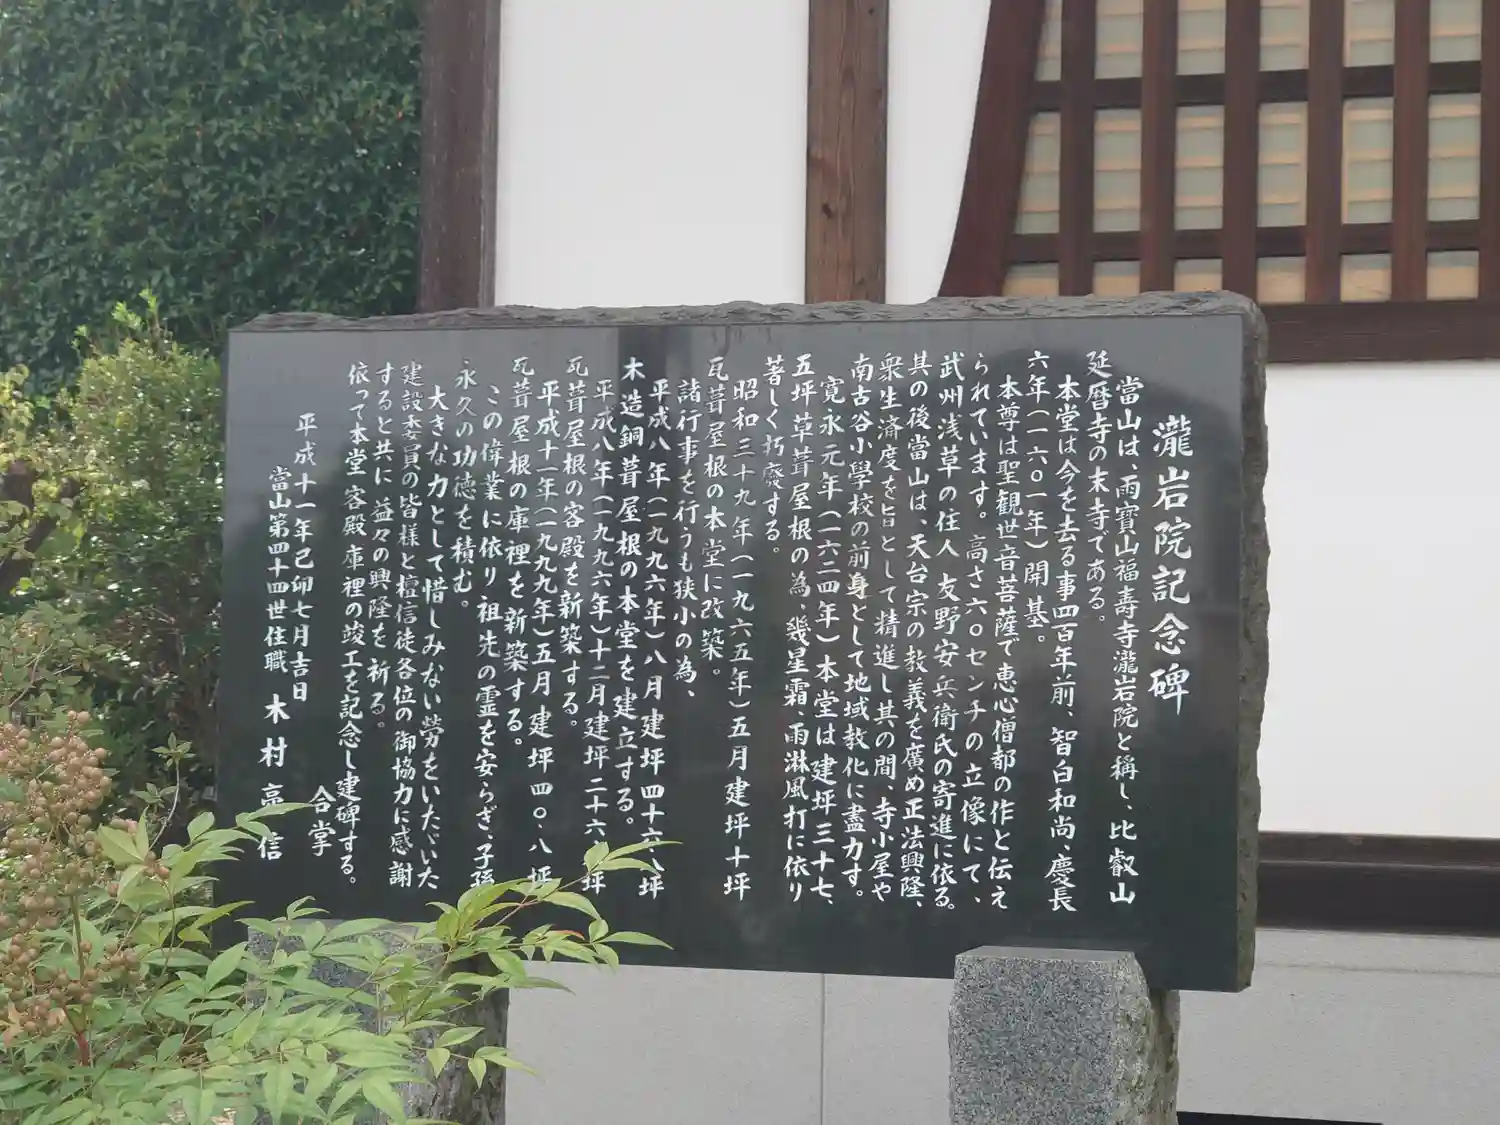 瀧岩院記念碑
當山は、雨寶山福壽寺瀧岩院と稱し、比叡山
延暦寺の末寺である。
本堂は今を去る事四百年前、智白和尚、慶長
六年(一六〇一年)開基。
本尊は聖観世音菩薩で恵心僧都の作と伝え
られています。高さ六〇センチの立像にて、
武州浅草の住人 友野安兵衛氏の寄進に依る。
其の後當山は、天台宗の教義を廣め正法興隆、
衆生済度を旨として精進し其の間、寺小屋や
南古谷小學校の前身として地域教化に盡力す。
寛永元年(一六二四年)本堂は建坪三十七、
五坪草葺屋根の為、幾星霜、雨淋風打に依り
著しく朽廢する。
昭和三十九年(一九六五年)五月建坪十坪
瓦葺屋根の本堂に改築。
諸行事を行うも狭小の為、
平成八年(一九九六年)八月建坪四十六八坪
木造銅葺屋根の本堂を建立する。
平成八年(一九九六年)十二月建坪二十六、坪
瓦葺屋根の客殿を新築する。
平成十一年(一九九九年)五月建坪四〇、八坪
瓦葺屋根の庫裡を新築する。
この偉業に依り祖先の霊を安らぎ、子孫
永久の功徳を積む。
大きな力として惜しみない労をいたゞいた
建設委員の皆様と檀信徒各位の御協力に感謝
すると共に 益々の興隆を祈る。
依って本堂客殿庫裡の竣工を記念し建碑する。
合掌
平成十一年己卯七月吉日
當山第四十四世住職 木村亮信